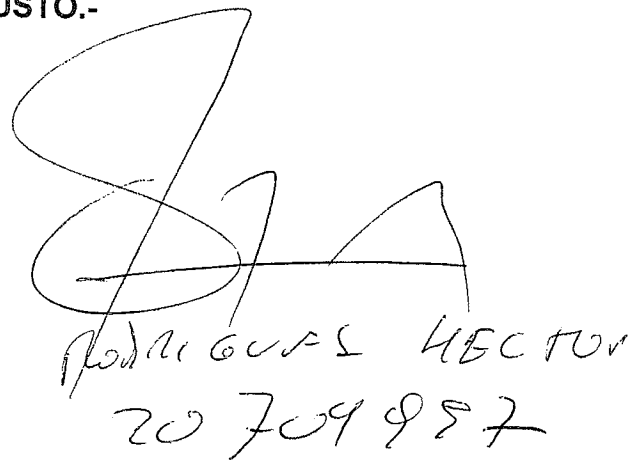 USTO.-
RODRIGUES HECTOR
20 709 997